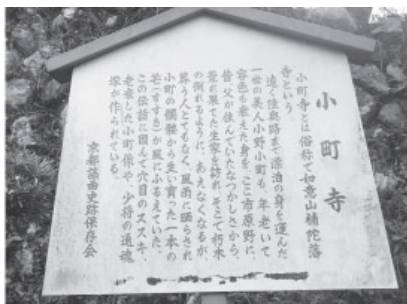 小町寺
小町寺とは俗称で如意山補陀落
寺という
遠く陸奥路まで漂泊の身を運んだ
一世の美人小野小町も、年老いて
容色も衰えた身を、ここ市原野に、
昔、父が住んでいたなつかしさから、
荒れ果てた生家を訪れ、そこで朽木
の倒れるように、あえなくなるが、
弔う人とてもなく、風雨に晒らされ
小町の髑髏から生い育った一本の
芒(すすき)が風にふるえていた。
この伝話に因んで穴目のススキ、
老衰した小町像や、少将の通魂
塚が作られている。
京都謡曲史跡保存会